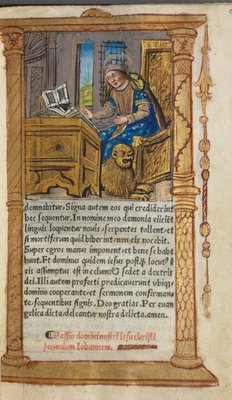 demnabitur. Signa autem eos qui crediderint
hec sequentur. In nomine meo demonia eiiciẽt
linguis loquentur nouis, serpentes tollent, et
si mortiferum quid biberint, non eis nocebit.
Super egros manus imponent, et bene se habe
bunt. Et dominus quidem iesus postq̃ locut9
eis assumptus est in celum, sedet a dextris
dei. Illi autem profecti predicauerunt vbiq3
domino cooperante, et sermonem confirman
te, sequentibus signis. Deo gratias. Per euan
gelica dicta, deleantur nostra delicta. amen.
Passio domini nostri Iesu christi
secundum Iohannem.